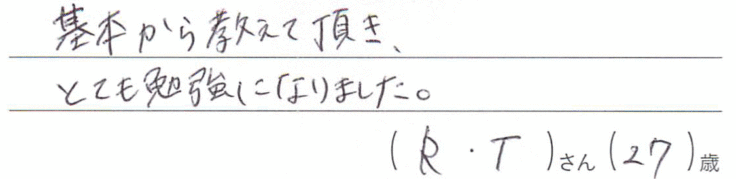 基本から教えて頂き、
とても勉強になりました。
(R・T)さん(27)歳